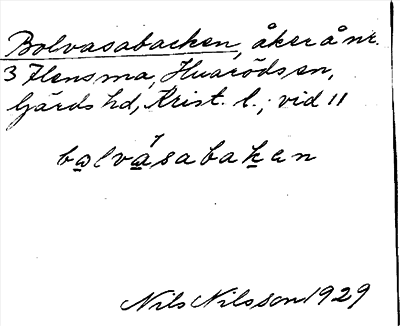 Bolvasabacken, åker å nr.
3 Flensma, Huarödsen,
Gärds hd, Krist. l.; vid 11
bo̲lvá̲sabak̲en
Nils Nilsson 1929